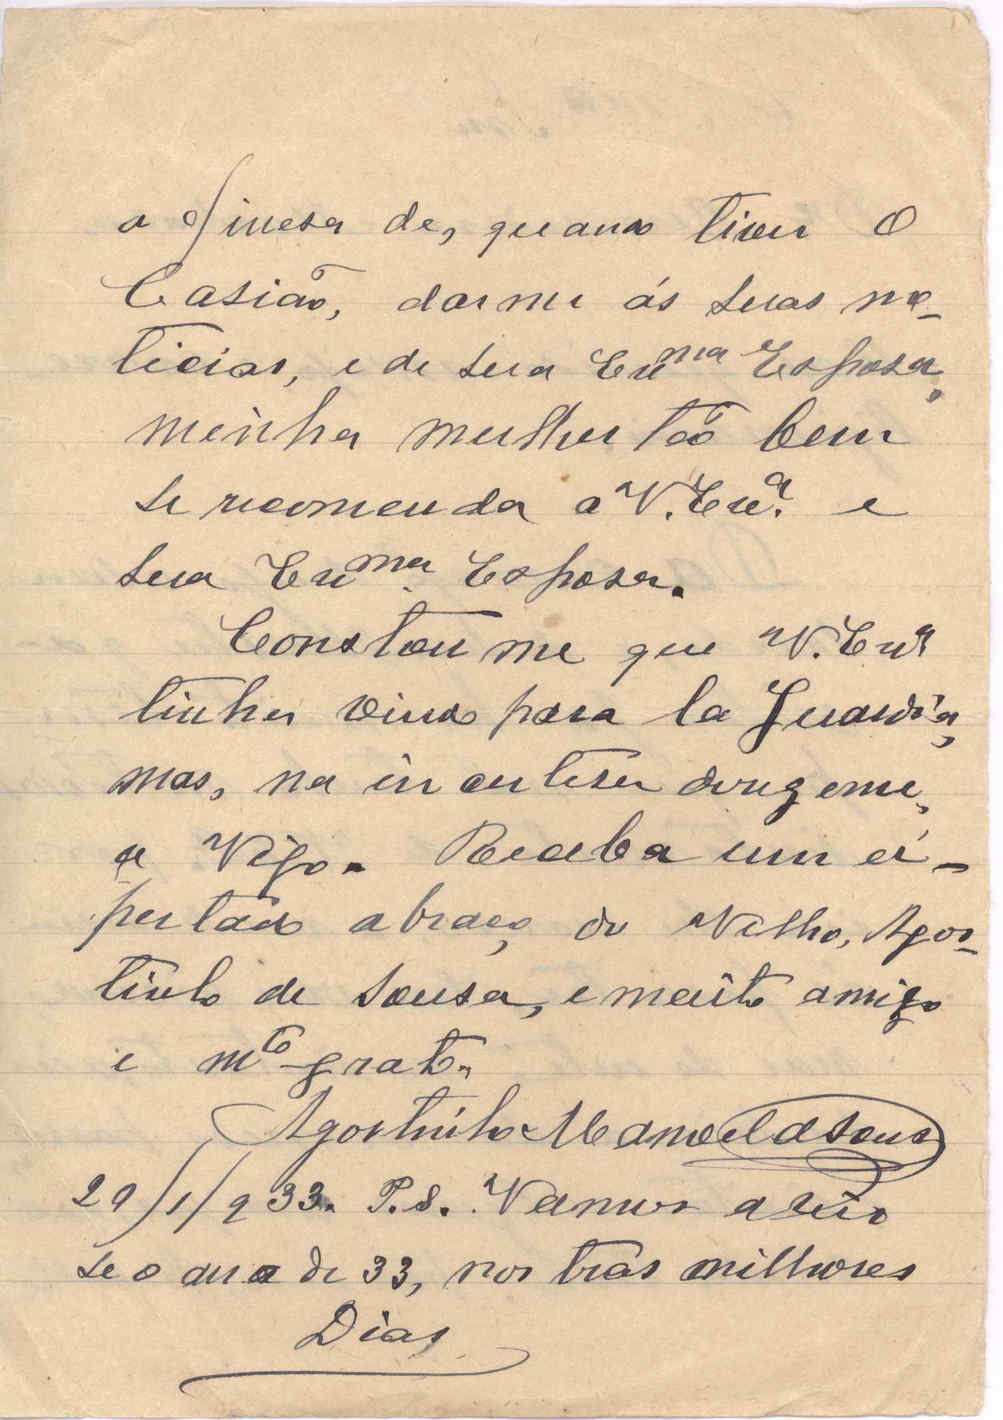 a finesa de, quando tiver O
Casião, darme ás suas no-
ticias, e de sua Exma Esposa,
minha mulher tão bem
se recomenda a V. Exa. e
sua Exma Esposa.
Constou me que V. Exa
tinha vindo para la Guardia,
mas, na in certesa dirig eme,
a Vigo. Receba um a-
pertado abraço do Velho, Agos-
tinho de Sousa, e muito amigo
e mto grato.
Agostinho Manoel da Sousa
29/1/933. P.S. Vamos a
se o ano de 33, nos tras milhores
Dias